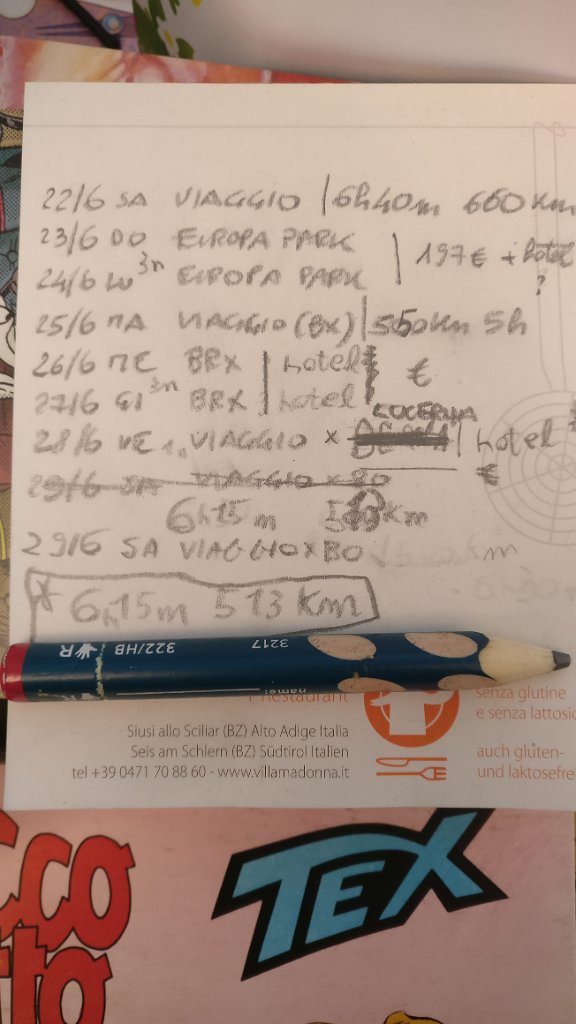 22/6 SA VIAGGIO | 6h40m 660 Km
23/6 DO EUROPA PARK
197€ + hotel
24/6 LU 3n EUROPA PARK
?
25/6 MA VIAGGIO (BX) | 550Km 5h
26/6 ME BRX | hotel
€
27/6 GI 3n BRX | hotel
LUCERNA
28/6 VE 1n VIAGGIO x | hotel
€
29/6 SA VIAGGIO x BO
6h15m Km
29/6 SA VIAGGIO x BO
m
* 6h15m 513 Km
322/HB 3217
name:
Restaurant
senza glutine
e senza lattosio
Siusi allo Sciliar (BZ) Alto Adige Italia
Seis am Schlern (BZ) Südtirol Italien
tel +39 0471 70 88 60 - www.villamadonna.it
auch gluten-
und laktosefre
TEX
cco